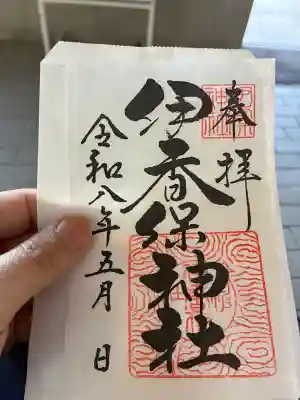 奉拝
伊香保神社
令和八年五月 日